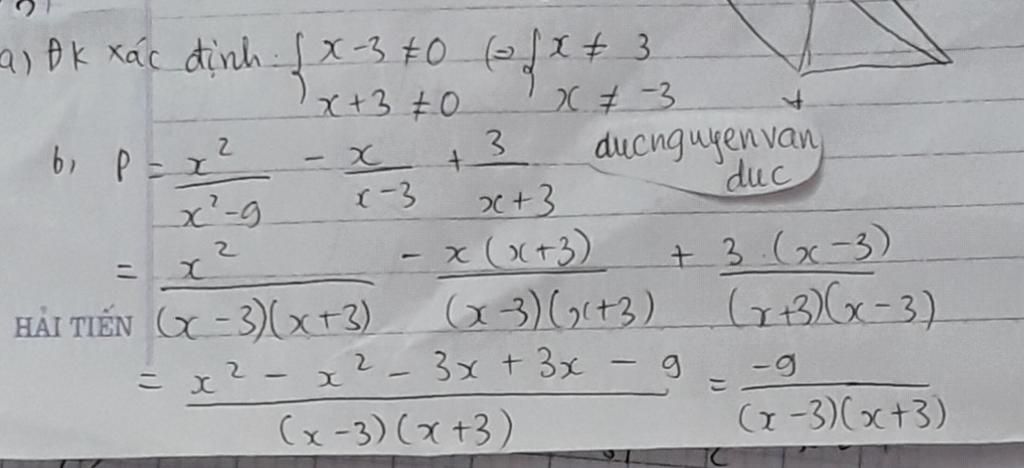 a) ĐK xác định: { x - 3 ≠ 0 (=) { x ≠ 3
x + 3 ≠ 0 x ≠ -3
b, P = x²/(x²-9) - x/(x-3) + 3/(x+3)
ducnguyenvan
duc
= x²/((x-3)(x+3)) - x(x+3)/((x-3)(x+3)) + 3.(x-3)/((x+3)(x-3))
HẢI TIẾN
= (x² - x² - 3x + 3x - 9)/((x-3)(x+3)) = -9/((x-3)(x+3))